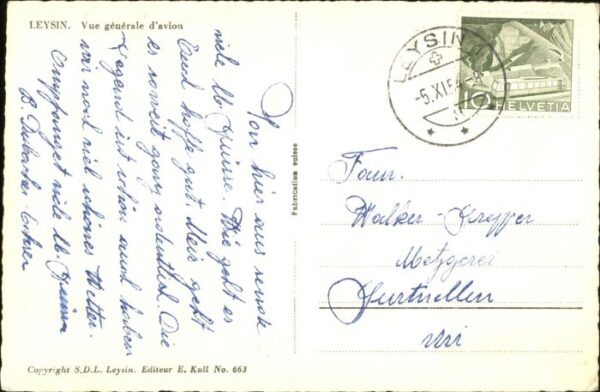 LEYSIN. Vue générale d'avion
Von hier aus sende
viele lb. Grüsse. Wie geht es
Euch hoffe gut. Mir geht
es soweit ganz ordentlich. Die
Gegend ist schön und haben
wir noch viel schönes Wetter.
Empfanget viele lb. Grüsse
B.
Fabrication suisse
Copyright S.D.L. Leysin. Editeur E. Kull No. 663
LEYSIN
-5.XI.54-
10
HELVETIA
Fam.
Walker-
Metzgerei
Gurtnellen
Uri